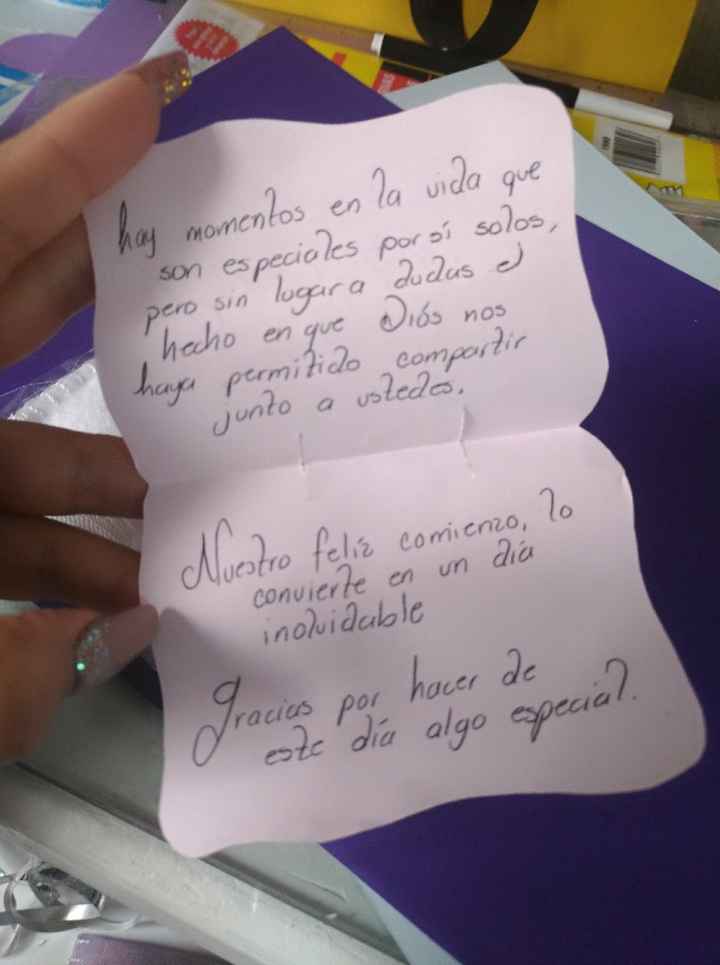 hay momentos en la vida que
son especiales por sí solos,
pero sin lugar a dudas el
hecho en que Diós nos
haya permitido compartir
junto a ustedes.
Nuestro feliz comienzo, lo
convierte en un día
inolvidable
Gracias por hacer de
este día algo especial.